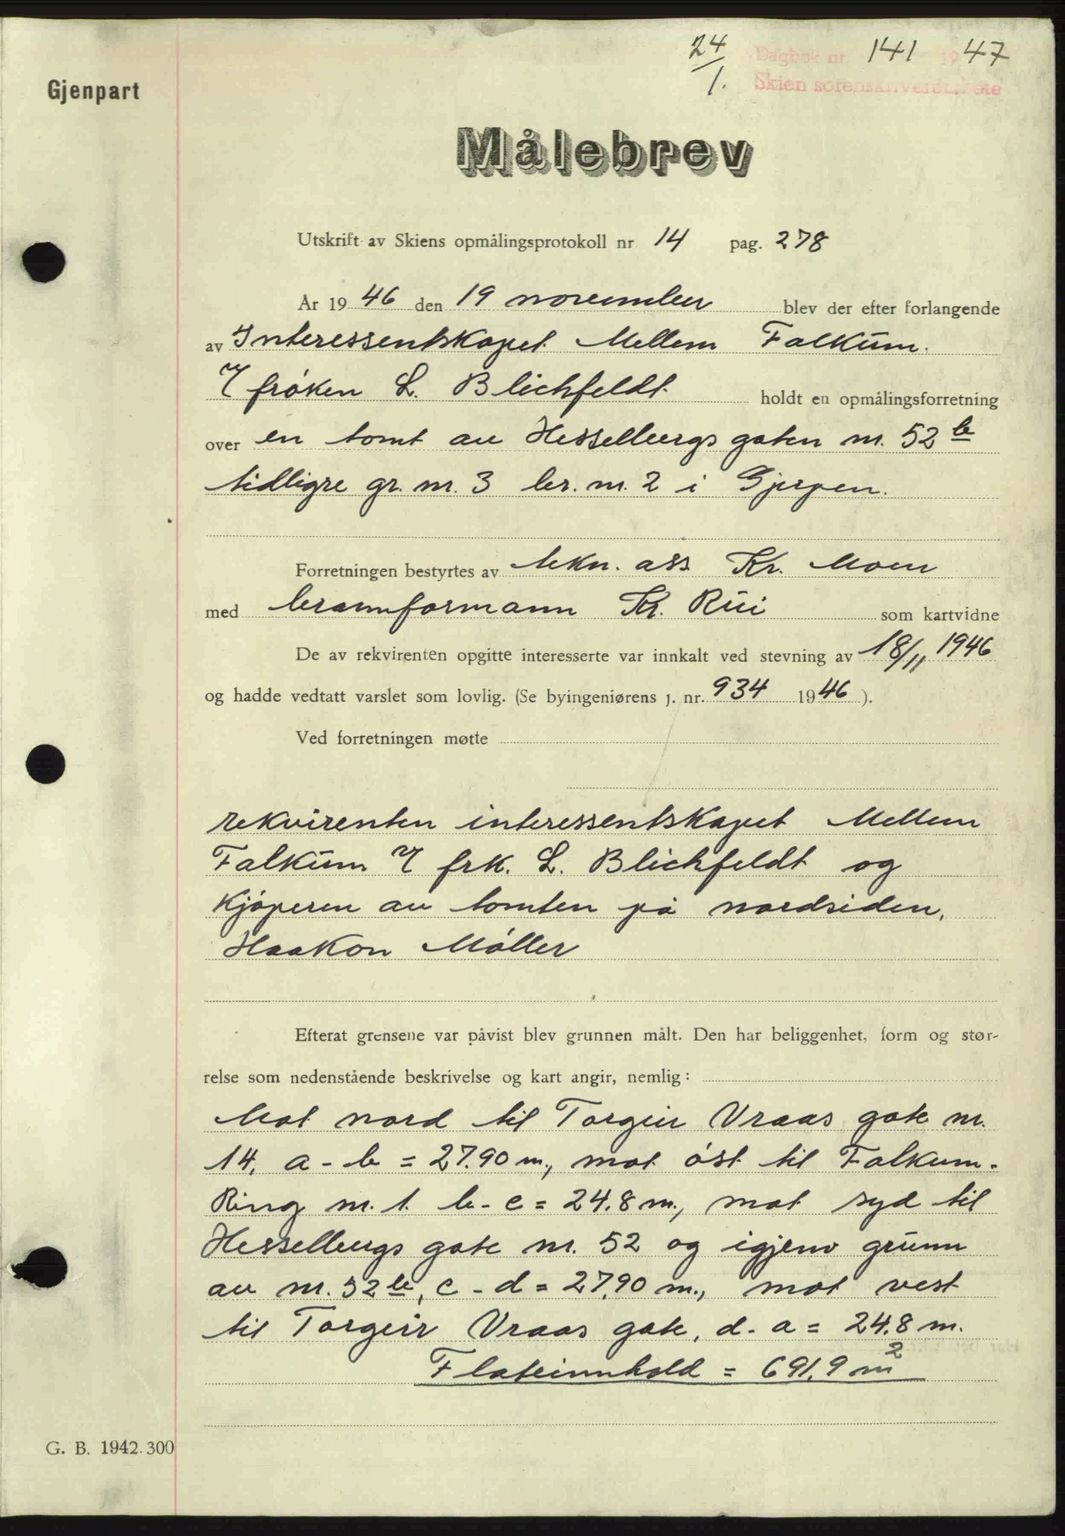 24/1. Dagbok nr. 141 1947
Skien sorenskriverembete
Gjenpart
Målebrev
Utskrift av Skiens opmålingsprotokoll nr 14 pag. 278
År 1946 den 19 november blev der efter forlangende
av Interessentskapet Mellem Falkum.
v/ frøken L. Blichfeldt holdt en opmålingsforretning
over en tomt av Hesselbergs gaten nr. 52 b
tidligre gr. nr. 3 br. nr. 2 i Gjerpen.
Forretningen bestyrtes av tekn. ass Kr. Moen
med brannformann Kr. Rui som kartvidne
De av rekvirenten opgitte interesserte var innkalt ved stevning av 18/11 1946
og hadde vedtatt varslet som lovlig. (Se byingeniørens j. nr. 934 1946).
Ved forretningen møtte
rekvirenten interessentskapet Mellem
Falkum v/ frk. L. Blichfeldt og
kjøperen av tomten på nordsiden,
Haakon Møller
Efterat grensene var påvist blev grunnen målt. Den har beliggenhet, form og stør-
relse som nedenstående beskrivelse og kart angir, nemlig:
Mot nord til Torgeir Vraas gate nr.
14, a - b = 27.90 m., mot øst til Falkum-
Ring nr. 1. b - c = 24.8 m., mot syd til
Hesselbergs gate nr. 52 og igjenv grunn
av nr. 52 b, c - d = 27.90 m., mot vest
til Torgeir Vraas gate, d - a = 24.8 m.
Flateinnhold = 691.9 m²
G. B. 1942. 300